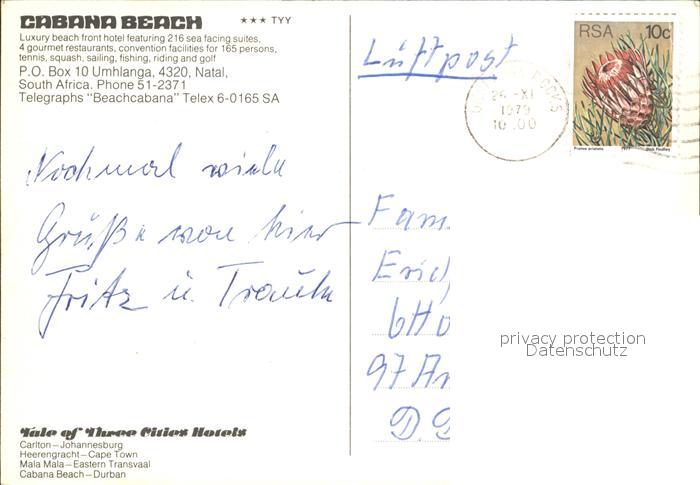 CABANA BEACH ★★★ TYY
Luxury beach front hotel featuring 216 sea facing suites,
4 gourmet restaurants, convention facilities for 165 persons,
tennis, squash, sailing, fishing, riding and golf
P.O. Box 10 Umhlanga, 4320, Natal,
South Africa. Phone 51-2371
Telegraphs "Beachcabana" Telex 6-0165 SA
Luftpost
RSA 10c
Protea aristata 1977 Dick Findlay
ROCKS
24 -XI
1979
10 00
Nochmal viele
Grüße von hier
Fritz u. Traute
Fam.
Erich
6
97
D.
privacy protection
Datenschutz
Tale of Three Cities Hotels
Carlton–Johannesburg
Heerengracht–Cape Town
Mala Mala–Eastern Transvaal
Cabana Beach–Durban